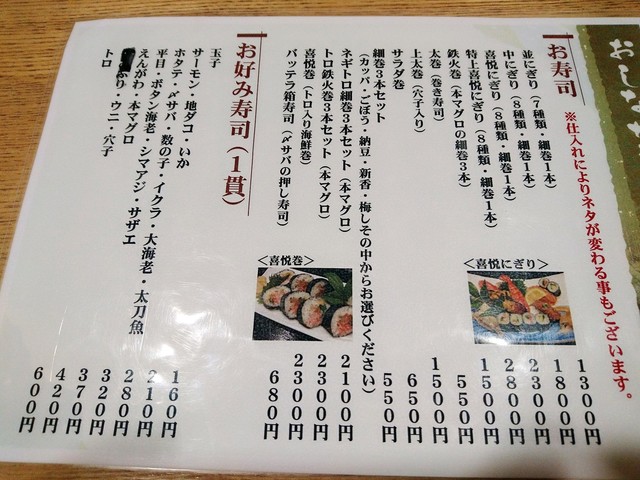 おしな
※仕入れによりネタが変わる事もございます。
お寿司
並にぎり（7種類・細巻1本） 1300円
中にぎり（8種類・細巻1本） 1800円
喜悦にぎり（8種類・細巻1本） 2300円
特上喜悦にぎり（8種類・細巻1本） 2800円
鉄火巻（本マグロの細巻3本） 1500円
太巻（巻き寿司） 550円
上太巻（穴子入り） 1500円
サラダ巻 650円
細巻3本セット 550円
（カッパ・ごぼう・納豆・新香・梅しその中からお選びください）
ネギトロ細巻3本セット（本マグロ） 2100円
トロ鉄火巻3本セット（本マグロ） 2300円
喜悦巻（トロ入り海鮮巻） 2300円
バッテラ箱寿司（〆サバの押し寿司） 680円
＜喜悦にぎり＞
＜喜悦巻＞
お好み寿司（1貫）
玉子 160円
サーモン・地ダコ・いか 210円
ホタテ・〆サバ・数の子・イクラ・大海老・太刀魚 280円
平目・ボタン海老・シマアジ・サザエ 320円
えんがわ・本マグロ 370円
ぶり・ウニ・穴子 420円
トロ 600円